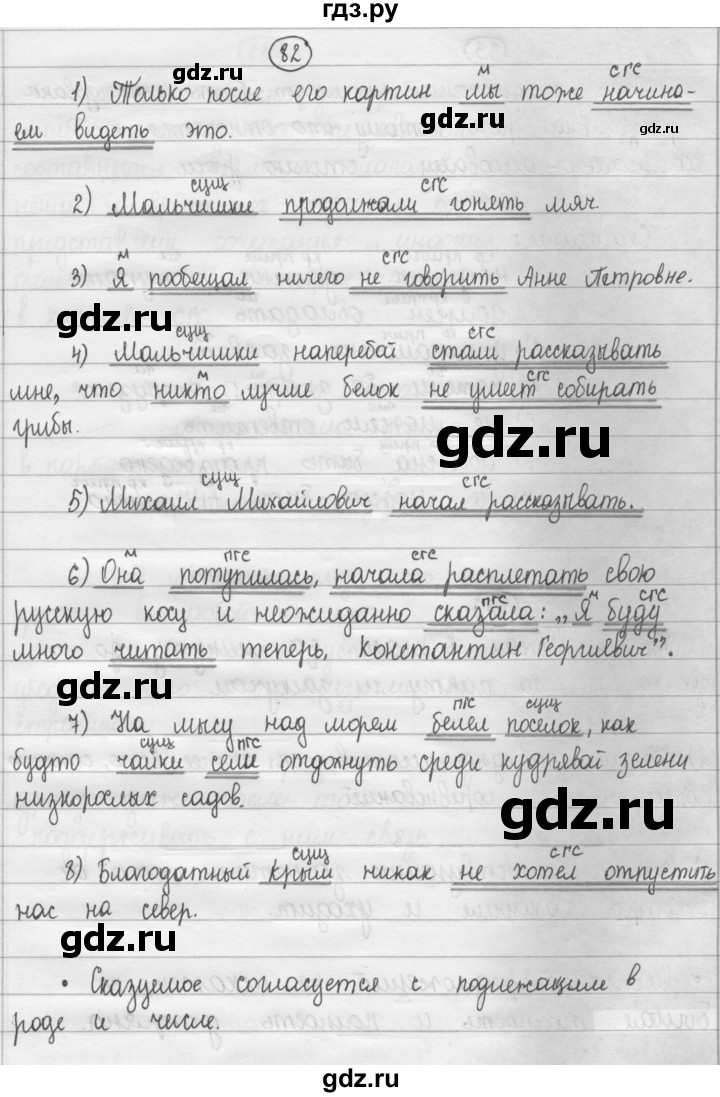 гдз.ру
82
м сгс
1) Только после его картин мы тоже начина-
ем видеть это.
gdz.ru
gdz.ru
сущ сгс
2) Мальчишки продолжали гонять мяч
м сгс
3) Я пообещал ничего не говорить Анне Петровне.
gdz.ru
сущ сгс
4) Мальчишки наперебой стали рассказывать
м сгс
мне, что никто лучше белок не умеет собирать
грибы.
gdz.ru
сущ сгс
5) Михаил Михайлович начал рассказывать.
gdz.ru
м пгс сгс
6) Она потупилась, начала расплетать свою
пгс м сгс
русскую косу и неожиданно сказала: „Я буду
много читать теперь, Константин Георгиевич".
gdz.ru
пгс сущ
7) На мысу над морем белел поселок, как
сущ пгс
будто чайки сели отдохнуть среди кудрявой зелени
низкорослых садов.
gdz.ru
сущ сгс
8) Благодатный Крым никак не хотел отпустить
нас на север.
gdz.ru
• Сказуемое согласуется с подлежащим в
роде и числе.
gdz.ru
gdz.ru